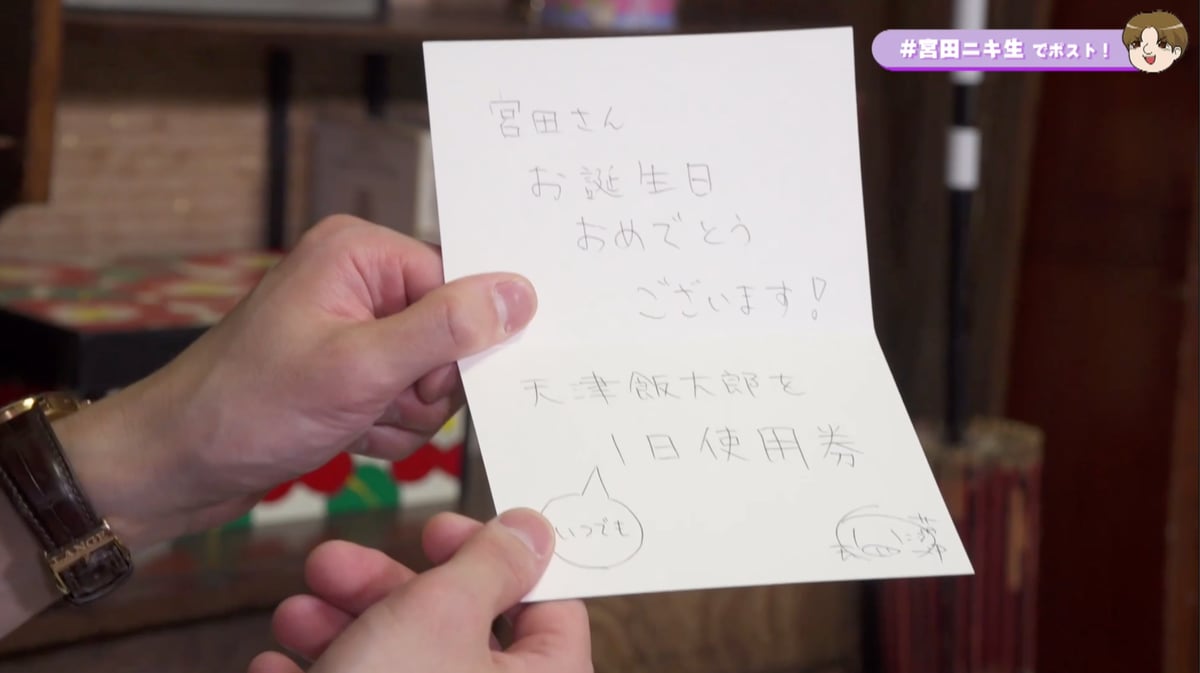 #宮田ニキ生 でポスト!
宮田さん
お誕生日
おめでとう
ございます!
天津飯大郎を
1日使用券
いつでも
LANGE